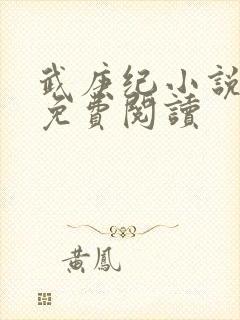 武庚纪小說
免費閱讀
黃鳳